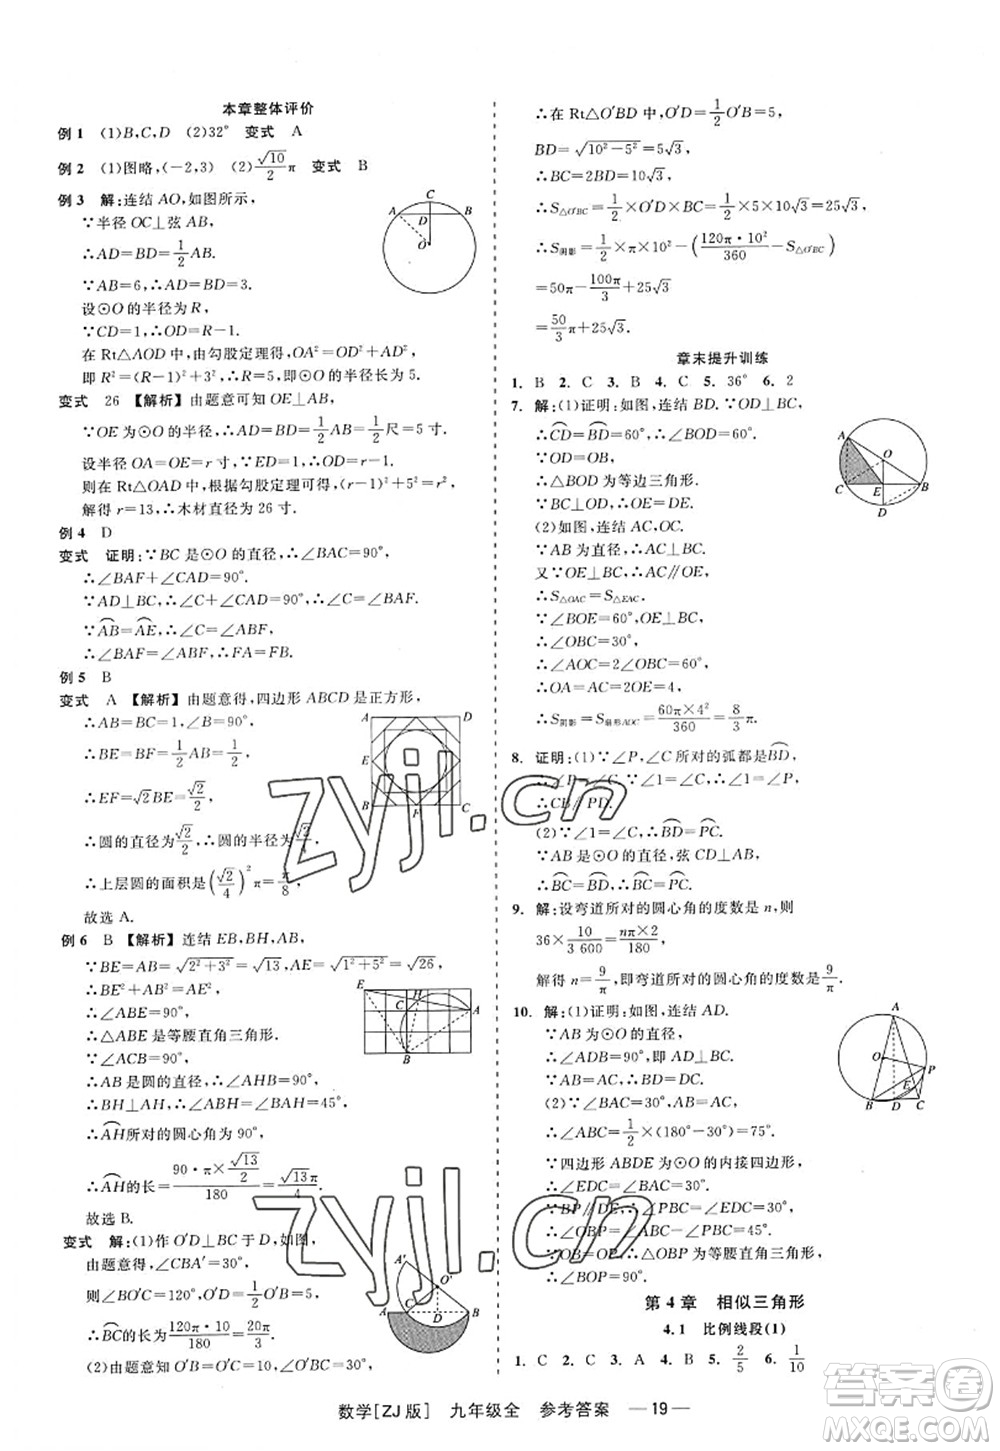 本章整体评价
例1 (1)B,C,D (2)32° 变式 A
例2 (1)图略,(-2,3) (2)√10/2 π 变式 B
例3 解:连结AO,如图所示,
∵半径OC⊥弦AB,
∴AD=BD=1/2AB.
∵AB=6,∴AD=BD=3.
设⊙O的半径为R,
∵CD=1,∴OD=R-1.
在Rt△AOD中,由勾股定理得,OA²=OD²+AD²,
即R²=(R-1)²+3²,∴R=5,∴⊙O的半径长为5.
变式 26 【解析】由题意可知OE⊥AB,
∵OE为⊙O的半径,∴AD=BD=1/2AB=1/2尺=5寸,
设半径OA=OE=r寸,∵ED=1,∴OD=r-1,
则在Rt△OAD中,根据勾股定理可得,(r-1)²+5²=r²,
解得r=13,∴木材直径为26寸.
例4 D
变式 证明:∵BC是⊙O的直径,∴∠BAC=90°,
∴∠BAF+∠CAD=90°.
∵AD⊥BC,∴∠C+∠CAD=90°,∴∠C=∠BAF.
∵AB=AE,∴∠C=∠ABF,
∴∠BAF=∠ABF,∴AF=BF.
例5 B
变式 A 【解析】由题意得,四边形ABCD是正方形,
∴AB=BC=1,∠B=90°.
∴BE=BF=1/2AB=1/2,
∴EF=√2BE=√2/2,
∴圆的直径为√2/2,∴圆的半径为√2/4,
∴上层圆的面积是(√2/4)²π=π/8,
故选A.
例6 B 【解析】连结EB,BH,AB,
∵BE=AE=√(2²+3²)=√13,AB=√(1²+5²)=√26,
∴BE²+AE²=AB²,
∴∠ABE=90°,
∴△ABE是等腰直角三角形,
∵∠ACB=90°,
∴AB是圆的直径,∴∠AHB=90°,
∴BH⊥AE,∴∠HBA=∠HBE=45°,
∴AH所对的圆心角为90°,
∴AH的长=(90·π×√13/2)/180=√13π/4.
故选B.
变式 解:(1)作O′D⊥BC于D,如图,
由题意得,∠CBA′=30°,
则∠BO′C=120°,O′D=1/2O′B=5,
∴BC的长为120π·10/180=20π/3.
(2)由题意知O′B=O′C=AO=10,
∴在Rt△O′BD中,O′D=1/2O′B=5,
BD=√(10²-5²)=5√3,
∴BC=2BD=10√3,
∴S△O′BC=1/2×O′D×BC=1/2×5×10√3=25√3,
∴S阴影=1/2×π×10²-(120π·10²/360-S△O′BC)
=50π-100π/3+25√3
=50/3π+25√3.
章末提升训练
1. B 2. C 3. B 4. C 5. 36° 6. 2
7. 解:(1)证明:如图,连结BD.∵OD⊥BC,
∴CD=BD=60°,∴∠BOD=60°,
∵OD=OB,
∴△OBD为等边三角形,
∵OD⊥BC,∴OE=DE.
(2)如图,连结AC,OC.
∵AB为直径,∴AC⊥BC.
又∵OE⊥BC,∴OE∥AC,
∴S△OAC=S△EAC.
∵∠BOE=60°,
∴∠OBC=30°,
∴∠AOC=2∠OBC=60°,
∴OA=AC=2OE=4,
∴S阴影=S扇形AOC=60π×4²/360=8/3π.
8. 证明:(1)∵∠P,∠C所对的弧都是BD,
∴∠P=∠C,∵∠1=∠C,∴∠1=∠P,
∴CB∥PD.
(2)∵∠1=∠C,∴BD=PC.
∵AB是⊙O的直径,弦CD⊥AB,
∴BC=BD,∴BC=PC.
9. 解:设弯道所对的圆心角的度数是n,则
36×10/3 600=nπ×2/180,
解得n=9/π,即弯道所对的圆心角的度数是9/π.
10. 解:(1)证明:如图,连结AD.
∵AB为⊙O的直径,
∴∠ADB=90°,即AD⊥BC.
∵AB=AC,∴BD=DC.
(2)∵∠BAC=30°,AB=AC,
∴∠ABC=1/2×(180°-30°)=75°,
∵四边形ABDE为⊙O的内接四边形,
∴∠EDC=∠BAC=30°,
∵BP∥DE,∴∠PBC=∠EDC=30°,
∴∠OBP=∠ABC-∠PBC=45°.
∵OB=OP,∴△OBP为等腰直角三角形,
∴∠BOP=90°.
第4章 相似三角形
4.1 比例线段(1)
1. C 2. C 3. A 4. B 5. 2/5 6. 1/10
数学[ZJ版] 九年级全 参考答案 —19—
zyjl.cn
zyjl.cn
答案圈
MXQE.COM